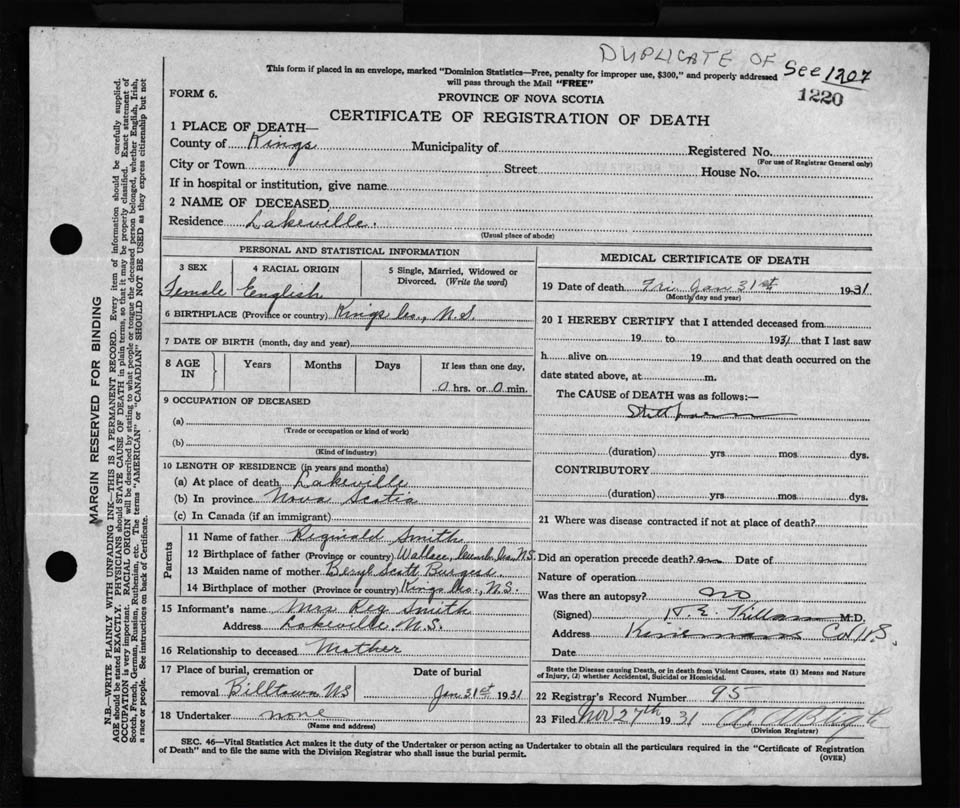 DUPLICATE OF
See 1207
1220
This form if placed in an envelope, marked "Dominion Statistics—Free, penalty for improper use, $300," and properly addressed
will pass through the Mail "FREE"
FORM 6.
PROVINCE OF NOVA SCOTIA
CERTIFICATE OF REGISTRATION OF DEATH
1 PLACE OF DEATH—
County of Kings Municipality of Registered No.
(For use of Registrar General only)
City or Town Street House No.
If in hospital or institution, give name
2 NAME OF DECEASED
Residence Lakeville.
(Usual place of abode)
PERSONAL AND STATISTICAL INFORMATION
3 SEX 4 RACIAL ORIGIN 5 Single, Married, Widowed or
Divorced. (Write the word)
Female English
6 BIRTHPLACE (Province or country) Kings Co., N.S.
7 DATE OF BIRTH (month, day and year)
8 AGE IN Years Months Days If less than one day,
0 hrs. or 0 min.
9 OCCUPATION OF DECEASED
(a)
(Trade or occupation or kind of work)
(b)
(Kind of industry)
10 LENGTH OF RESIDENCE (in years and months)
(a) At place of death Lakeville
(b) In province Nova Scotia
(c) In Canada (if an immigrant)
Parents
11 Name of father Reginald Smith
12 Birthplace of father (Province or country) Wallace, Cumb. Co. N.S.
13 Maiden name of mother Beryl Scott Burgess.
14 Birthplace of mother (Province or country) Kings Co., N.S.
15 Informant's name Mrs Reg Smith
Address Lakeville N.S.
16 Relationship to deceased Mother
17 Place of burial, cremation or Date of burial
removal Billtown NS Jan 31st 1931
18 Undertaker none
(Name and address)
MEDICAL CERTIFICATE OF DEATH
19 Date of death Fri Jan 31st 1931
(Month, day and year)
20 I HEREBY CERTIFY that I attended deceased from
19 to 1931 that I last saw
h alive on 19 and that death occurred on the
date stated above, at m.
The CAUSE of DEATH was as follows:—
Stillborn
(duration) yrs mos dys.
CONTRIBUTORY
(duration) yrs mos dys.
21 Where was disease contracted if not at place of death?
Did an operation precede death? Date of
Nature of operation
Was there an autopsy? no
(Signed) Killam M.D.
Address N.S.
Date
State the Disease causing Death, or in death from Violent Causes, state (1) Means and Nature
of Injury, (2) whether Accidental, Suicidal or Homicidal.
22 Registrar's Record Number 95
23 Filed Nov 27th 1931
(Division Registrar)
SEC. 46—Vital Statistics Act makes it the duty of the Undertaker or person acting as Undertaker to obtain all the particulars required in the "Certificate of Registration
of Death" and to file the same with the Division Registrar who shall issue the burial permit.
(OVER)
MARGIN RESERVED FOR BINDING
N.B.—WRITE PLAINLY WITH UNFADING INK—THIS IS A PERMANENT RECORD. Every item of information should be carefully supplied.
AGE should be stated EXACTLY. PHYSICIANS should STATE CAUSE OF DEATH in plain terms, so that it may be properly classified. Exact statement of
OCCUPATION is very important. RACIAL ORIGIN will be described by stating to what people or tongue the deceased person belonged, whether English, Irish,
Scotch, French, German, Russian, Ruthenian, etc. The terms "AMERICAN" or "CANADIAN" SHOULD NOT BE USED as they express citizenship but not
a race or people. See instructions on back of Certificate.